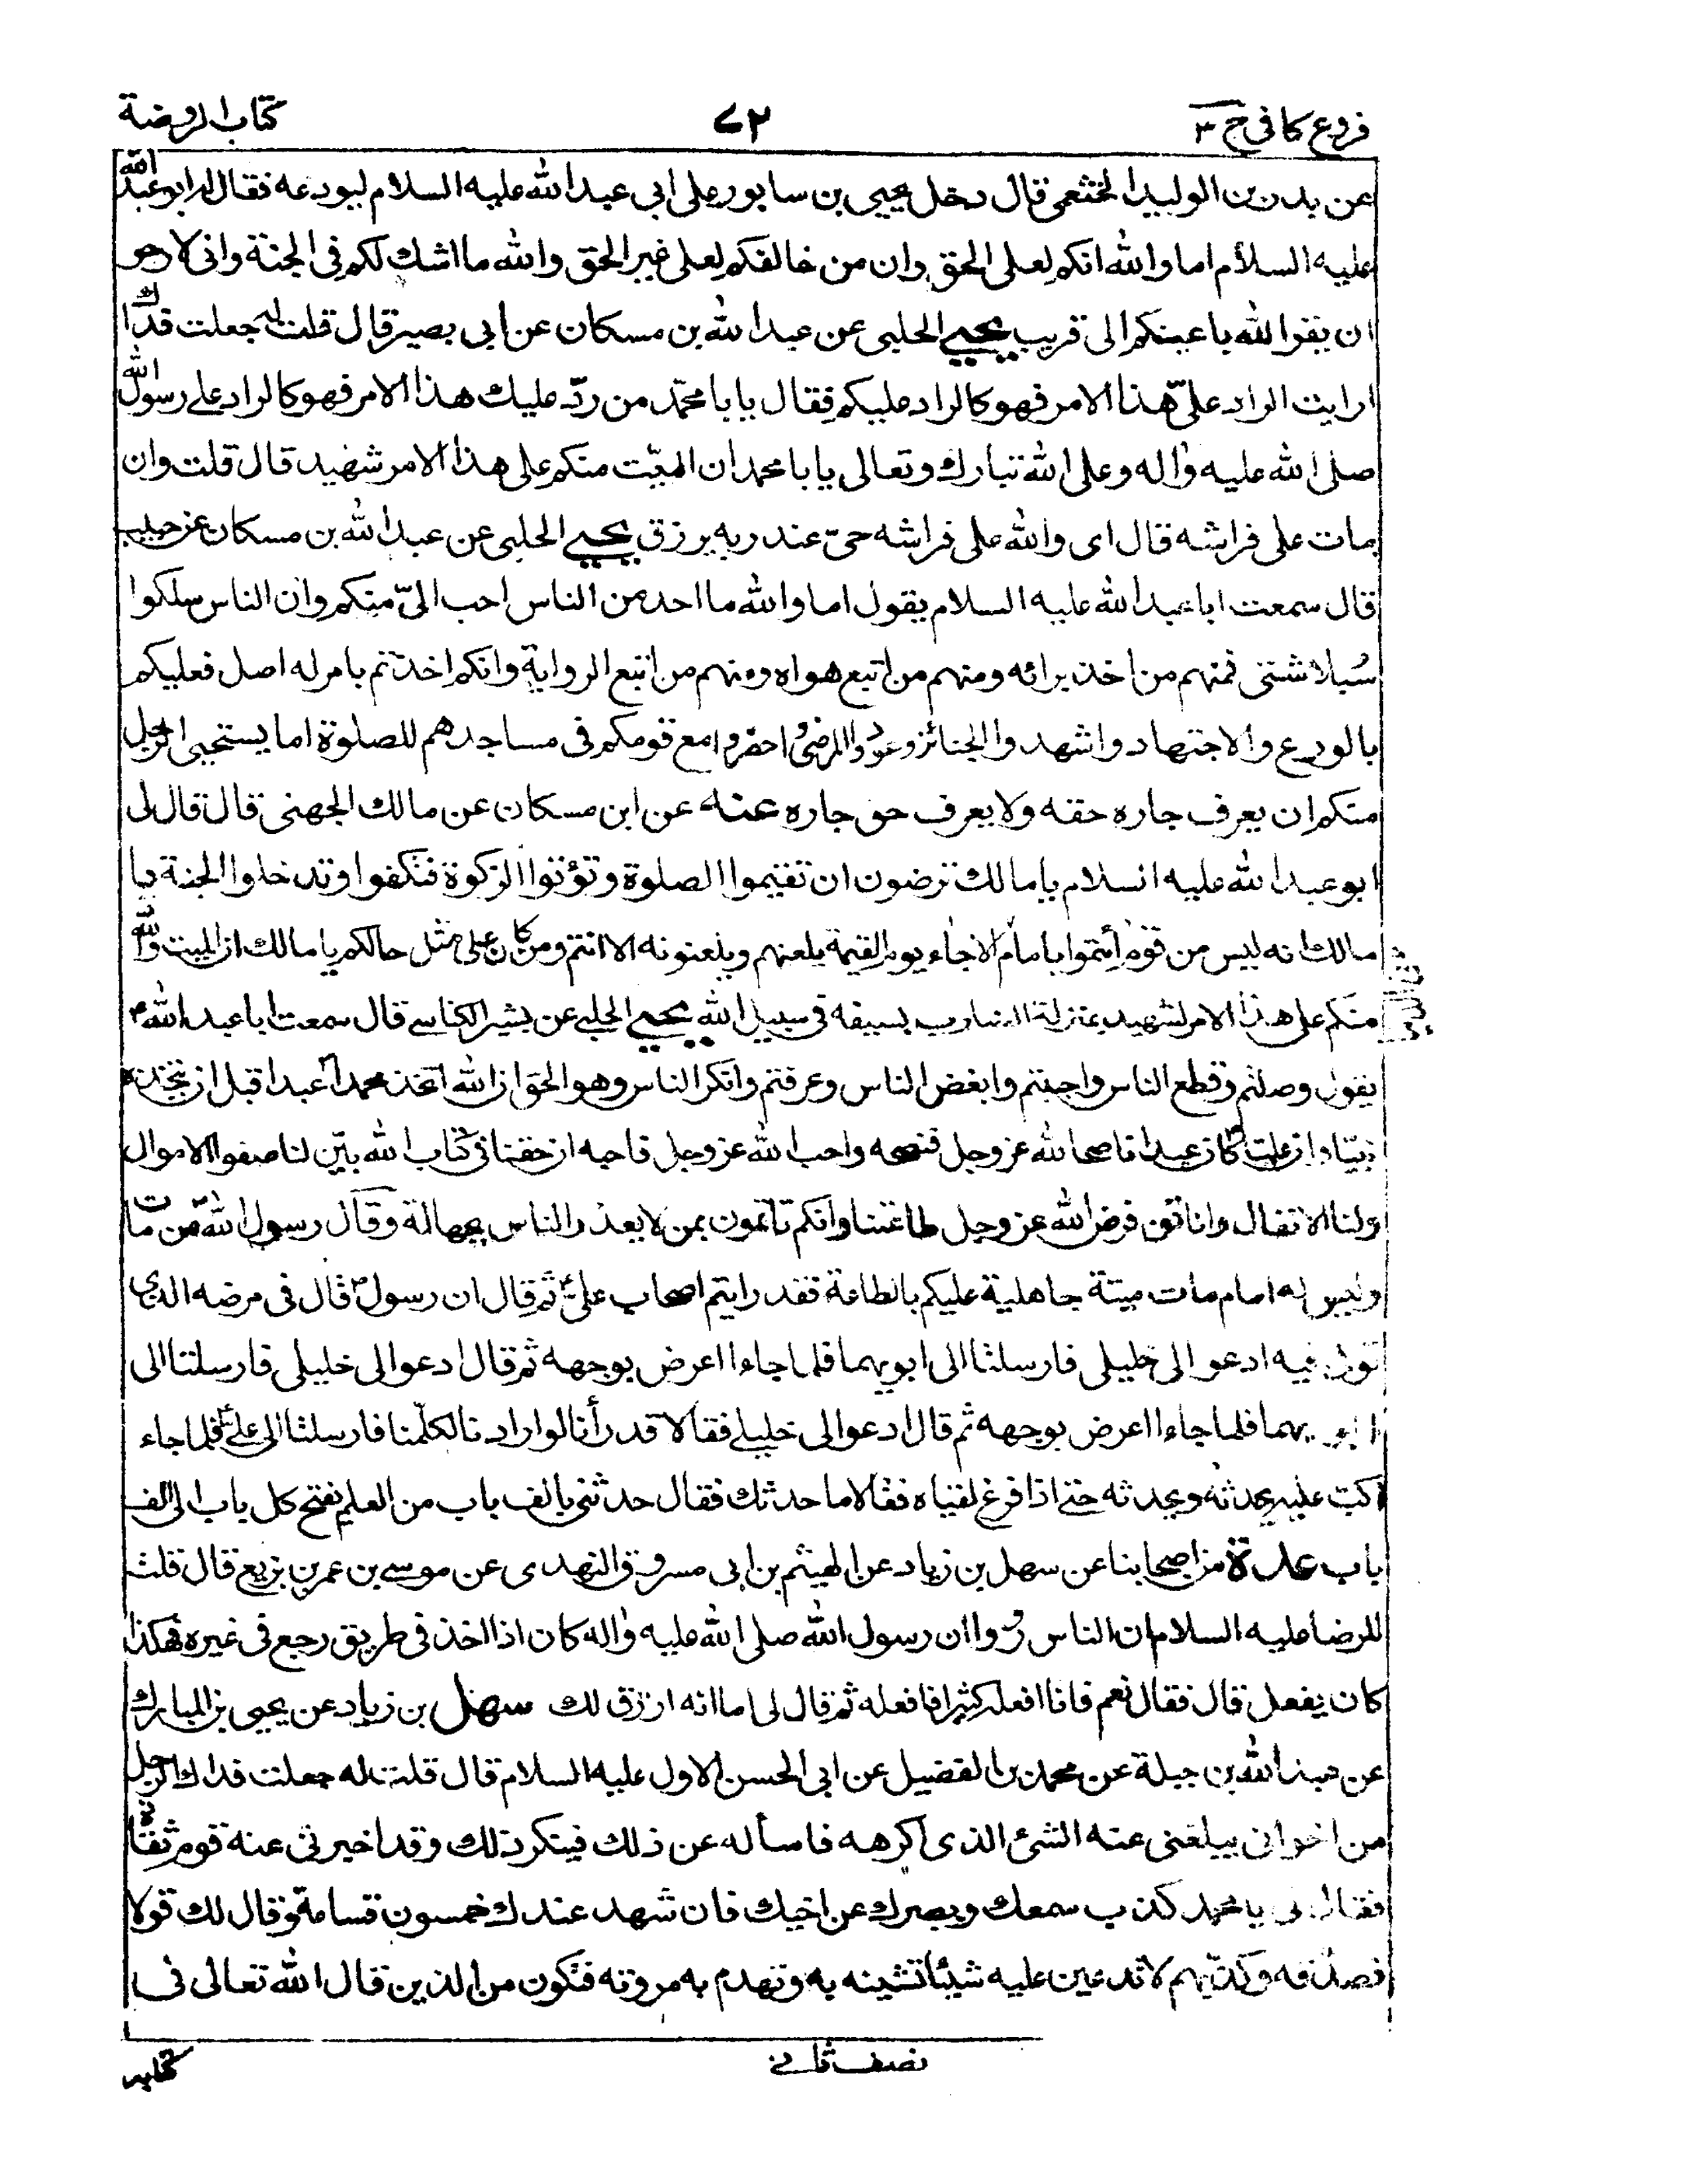 فروع كافى ج ٣
٧٢
كتاب الروضة
عن بدر بن الوليد الخثعمى قال دخل يحيى بن سابور على ابى عبد الله عليه السلام ليودعه فقال له ابو عبد الله
عليه السلام اما والله انكم لعلى الحق وان من خالفكم لعلى غير الحق والله ما اشك لكم فى الجنة وانى لارجو
ان يقر الله باعينكم الى قريب يحيى الحلبى عن عبد الله بن مسكان عن ابى بصير قال قلت له جعلت فداك
ارايت الراد علىّ هذا الامر فهو كالراد عليكم فقال يا با محمّد من ردّ عليك هذا الامر فهو كالراد على رسول الله
صلى الله عليه واله وعلى الله تبارك وتعالى يا با محمد ان الميّت منكم على هذا الامر شهيد قال قلت وان
مات على فراشه قال اى والله على فراشه حىّ عند ربه يرزق يحيى الحلبى عن عبد الله بن مسكان عن حبيب
قال سمعت ابا عبد الله عليه السلام يقول اما والله ما احد من الناس احب الىّ منكم وان الناس سلكوا
سُبلا شتى فمنهم من اخذ برائه ومنهم من اتبع هواه ومنهم من اتبع الرواية وانكم اخذتم بامر له اصل فعليكم
بالورع والاجتهاد واشهدوا الجنائز وعودوا المرضى واحضروا مع قومكم فى مساجدهم للصلوة اما يستحيى الرجل
منكم ان يعرف جاره حقه ولا يعرف حق جاره عنه عن ابن مسكان عن مالك الجهنى قال قال لى
ابو عبد الله عليه السلام يا مالك ترضون ان تقيموا الصلوة وتؤتوا الزكوة فتكفوا وتدخلوا الجنة يا
مالك انه ليس من قوم أئتموا بامام الا جاء يوم القيمة يلعنهم ويلعنونه الا انتم ومن كان على مثل حالكم يا مالك ان الميت والله
منكم على هذا الامر لشهيد بمنزلة الضارب بسيفه فى سبيل الله يحيى الحلبى عن بشير الكناسى قال سمعت ابا عبد الله
يقول وصلتم وقطع الناس واحببتم وابغض الناس وعرفتم وانكر الناس وهو الحق ان الله اتخذ محمدا عبدا قبل ان يتخذه
نبيّا وان عليا كان عبدا ناصحا لله عز وجل فنصحه واحب الله عز وجل فاحبه ان حقنا فى كتاب الله بيّن لنا صفو الاموال
ولنا الانفال وانا قوم فرض الله عز وجل طاعتنا وانكم تأتمون بمن لا يعذر الناس بجهالة وقال رسول الله من مات
وليس له امام مات ميتة جاهلية عليكم بالطاعة فقد رايتم اصحاب علىّ ثم قال ان رسول قال فى مرضه الذى
توفى فيه ادعوا لى خليلى فارسلتا الى ابويهما فلما جاءا اعرض بوجهه ثم قال ادعوا لى خليلى فارسلتا الى
ابويهما فلما جاءا اعرض بوجهه ثم قال ادعوا لى خليلى فقالا قد رأنا لو ارادنا لكلّمنا فارسلتا الى على فلما جاء
اكبّ عليه يحدثه ويحدثه حتى اذا فرغ لقياه فقالا ما حدثك فقال حدثنى بالف باب من العلم يفتح كل باب الى الف
باب عدة من اصحابنا عن سهل بن زياد عن الهيثم بن ابى مسروق النهدى عن موسى بن عمر بن بزيع قال قلت
للرضا عليه السلام ان الناس رووا ان رسول الله صلى الله عليه واله كان اذا اخذ فى طريق رجع فى غيره فهكذا
كان يفعل قال فقال نعم فانا افعله كثيرا فافعله ثم قال لى اما انه ارزق لك سهل بن زياد عن يحيى بن المبارك
عن عبد الله بن جبلة عن محمد بن الفضيل عن ابى الحسن الاول عليه السلام قال قلت له جعلت فداك الرجل
من اخوانى يبلغنى عنه الشئ الذى اكرهه فاسأله عن ذلك فينكر ذلك وقد اخبرنى عنه قوم ثقات
فقال لى يا محمد كذب سمعك وبصرك عن اخيك فان شهد عندك خمسون قسامة وقال لك قولا
فصدّقه وكذّبهم لا تدعين عليه شيئا تشينه به وتهدم به مروته فتكون من الذين قال الله تعالى فى
نصف ثانى
كتابه